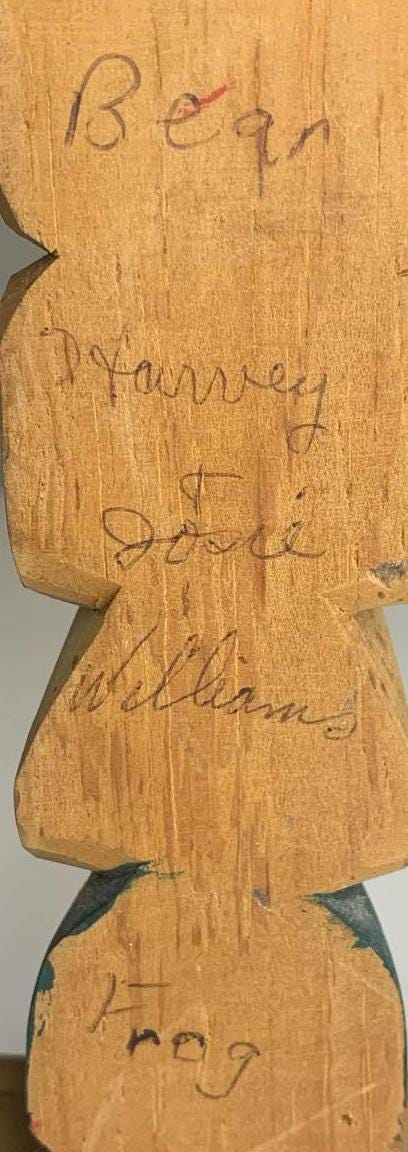 Bear
Harvey
+
Josie
Williams
Frog